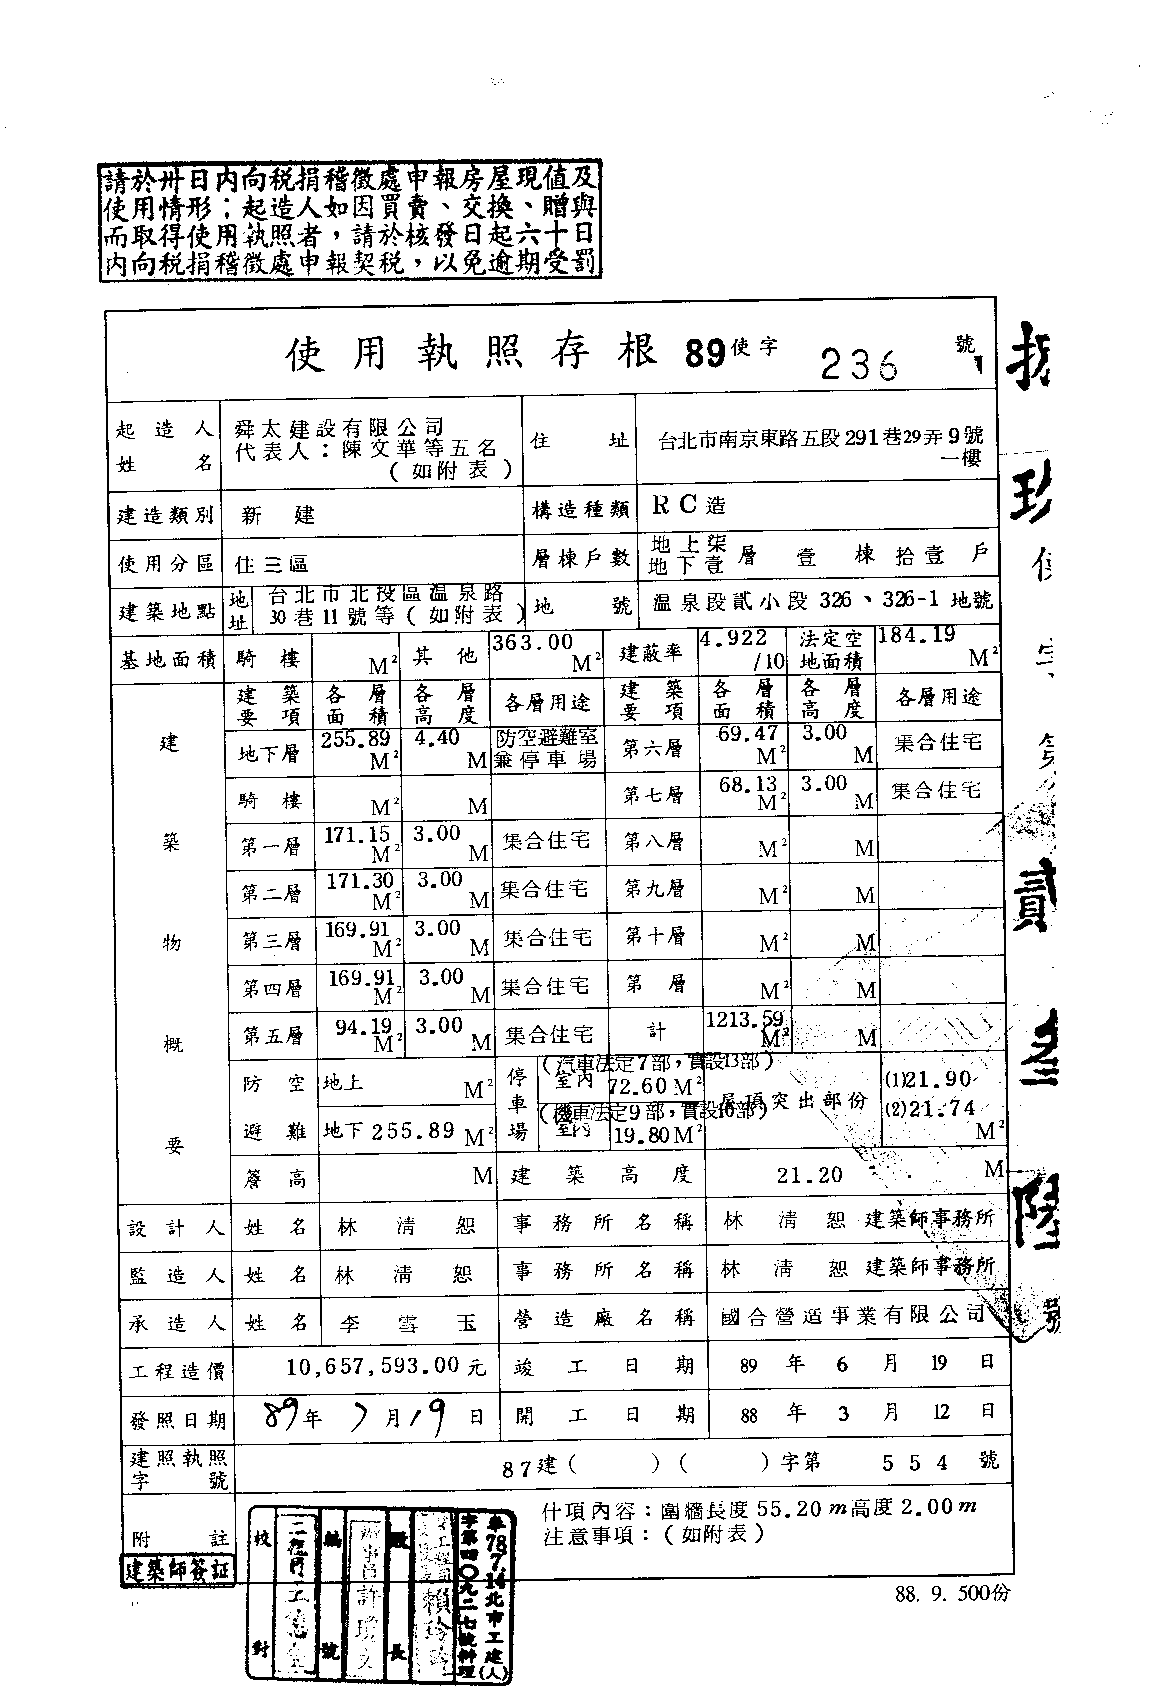 請於卅日內向稅捐稽徵處申報房屋現值及
使用情形；起造人如因買賣、交換、贈與
而取得使用執照者，請於核發日起六十日
內向稅捐稽徵處申報契稅，以免逾期受罰
使用執照存根 89使字 236 號
起造人姓名 舜太建設有限公司 代表人：陳文華等五名（如附表） 住址 台北市南京東路五段291巷29弄9號一樓
建造類別 新建 構造種類 RC造
使用分區 住三區 層棟戶數 地上柒 地下壹 層 壹 棟 拾壹 戶
建築地點 地址 台北市北投區溫泉路30巷11號等（如附表） 地號 溫泉段貳小段 326、326-1 地號
基地面積 騎樓 M² 其他 363.00 M² 建蔽率 4.922/10 法定空地面積 184.19 M²
建築物概要
建築要項 各層面積 各層高度 各層用途 建築要項 各層面積 各層高度 各層用途
地下層 255.89 M² 4.40 M 防空避難室兼停車場 第六層 69.47 M² 3.00 M 集合住宅
騎樓 M² M 第七層 68.13 M² 3.00 M 集合住宅
第一層 171.15 M² 3.00 M 集合住宅 第八層 M² M
第二層 171.30 M² 3.00 M 集合住宅 第九層 M² M
第三層 169.91 M² 3.00 M 集合住宅 第十層 M² M
第四層 169.91 M² 3.00 M 集合住宅 第 層 M² M
第五層 94.19 M² 3.00 M 集合住宅 計 1213.59 M² M
防空避難 地上 M² 停車場 （汽車法定7部，實設13部） 室內 72.60 M² 屋頂突出部份 (1)21.90
地下 255.89 M² （機車法定9部，實設10部） 室內 19.80 M² (2)21.74 M²
簷高 M 建築高度 21.20 M
設計人 姓名 林清恕 事務所名稱 林清恕 建築師事務所
監造人 姓名 林清恕 事務所名稱 林清恕 建築師事務所
承造人 姓名 李雪玉 營造廠名稱 國合營造事業有限公司
工程造價 10,657,593.00元 竣工日期 89年6月19日
發照日期 89年7月19日 開工日期 88年3月12日
建照執照字號 87建（ ）（ ）字第 554 號
附註 什項內容：圍牆長度55.20m高度2.00m
注意事項：（如附表）
建築師簽証
88. 9. 500份
校對
編號
股長
奉78.7.14北市工建(人)
字第四〇九二七號辦理
貳
叁
陸
號